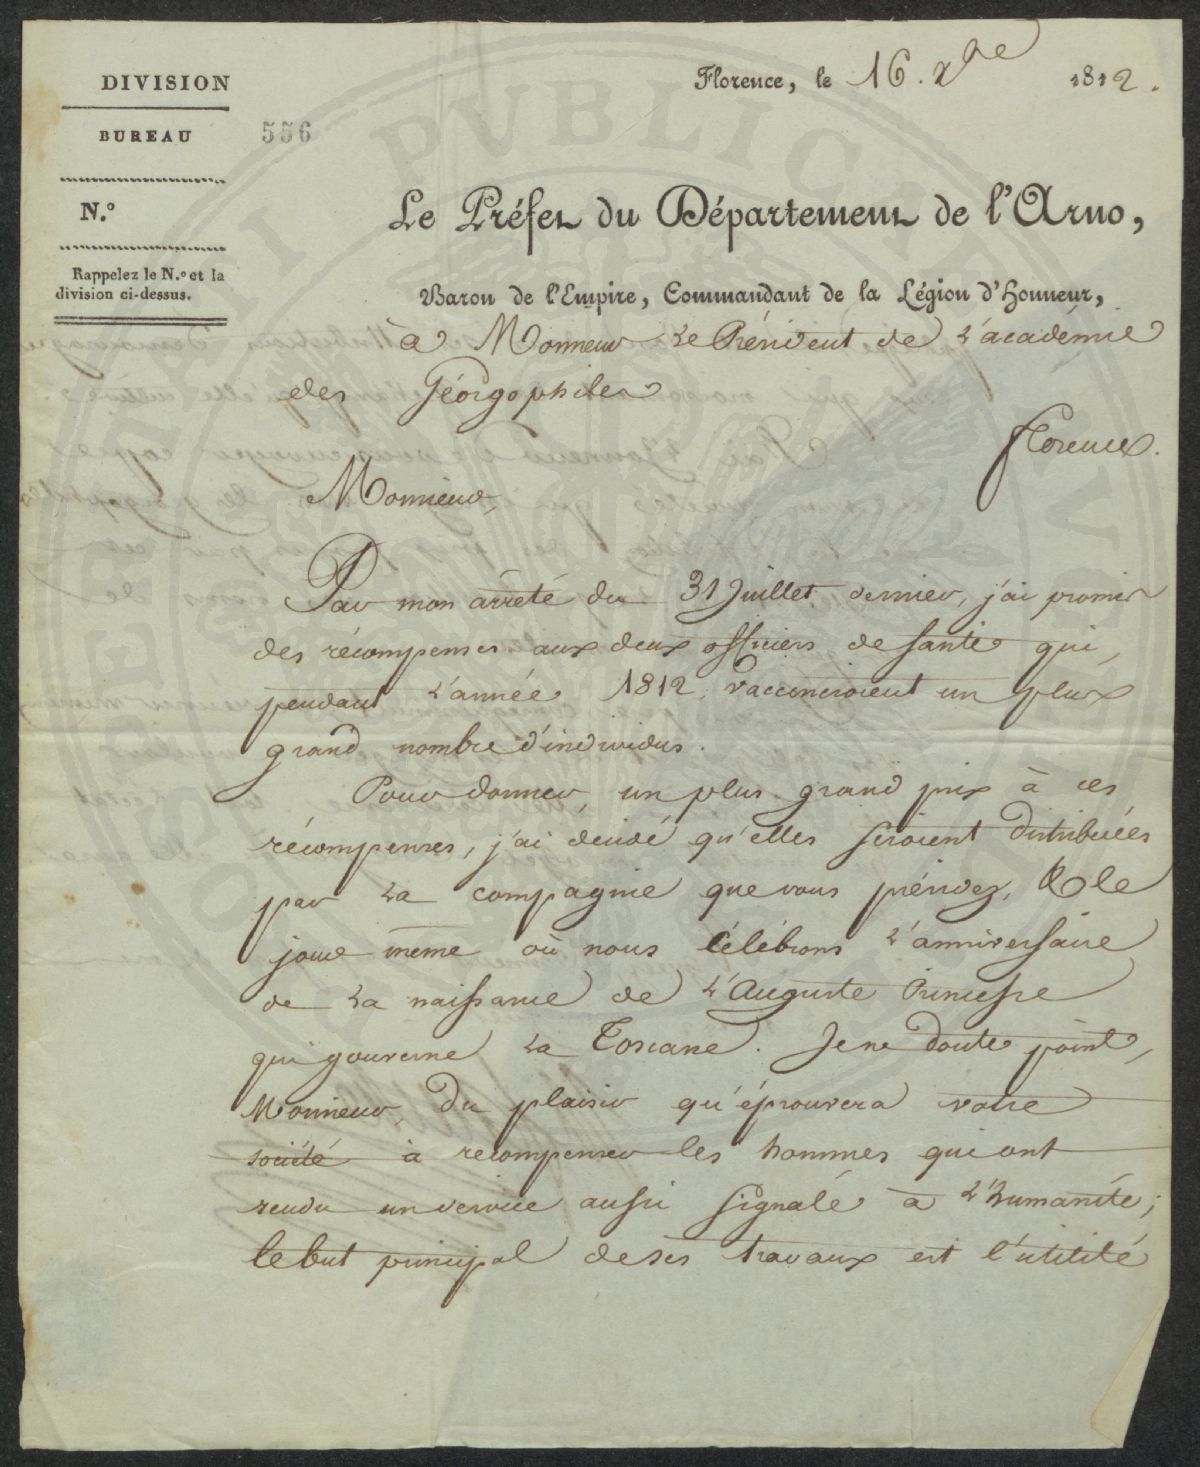 DIVISION
BUREAU
556
N.º
Rappelez le N.º et la
division ci-dessus.
Florence, le 16. Xbre 1812.
Le Préfet du Département de l'Arno,
Baron de l'Empire, Commandant de la Légion d'Honneur,
à Monsieur Le Président de L'académie
des Géorgophiles
Florence.
Monsieur,
Par mon arrêté du 31 Juillet dernier, j'ai promis
des récompenses aux deux officiers de santé qui,
pendant L'année 1812, vaccineroient un plus
grand nombre d'individus.
Pour donner, un plus grand prix à ces
récompenses, j'ai décidé qu'elles seroient distribuées
par La compagnie que vous présidez, & le
jour même où nous célébrons L'anniversaire
de La naissance de L'Auguste Princesse
qui gouverne La Toscane. Je ne doute point,
Monsieur, du plaisir qu'éprouvera votre
société à recompenser les hommes qui ont
rendu un service aussi signalé à L'humanité;
le but principal de ses travaux est l'utilité